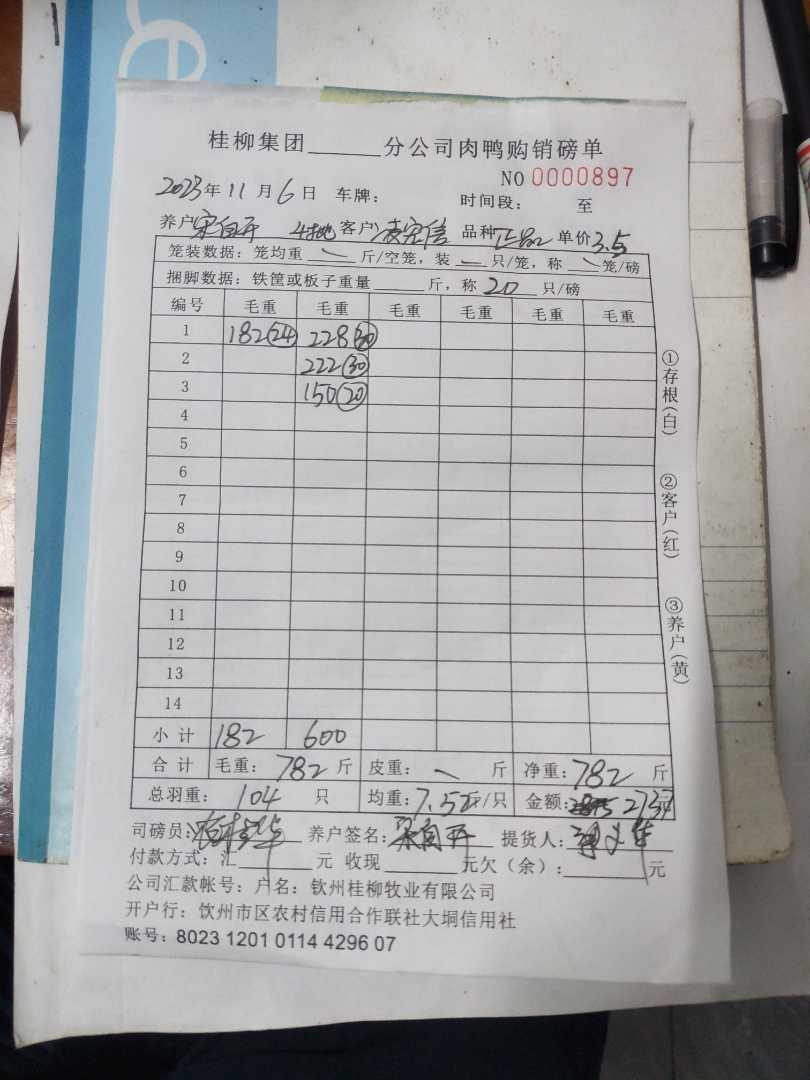 桂柳集团______分公司肉鸭购销磅单
NO 0000897
2023年11月6日 车牌： 时间段： 至
养户 宋自开 客户 凌宏信 品种 正品 单价3.5
笼装数据：笼均重 \ 斤/空笼，装 \ 只/笼，称 \ 笼/磅
捆脚数据：铁筐或板子重量______斤，称 20 只/磅
编号 毛重 毛重 毛重 毛重 毛重 毛重
1 182(24) 228(30)
2 222(30)
3 150(20)
4
5
6
7
8
9
10
11
12
13
14
小计 182 600
合计 毛重：782斤 皮重：\ 斤 净重：782斤
总羽重：104只 均重：7.52斤/只 金额：2737
司磅员： 养户签名：宋自开 提货人：
付款方式：汇______元 收现______元欠（余）：______元
公司汇款帐号：户名：钦州桂柳牧业有限公司
开户行：饮州市区农村信用合作联社大垌信用社
账号：8023 1201 0114 4296 07
①存根（白）
②客户（红）
③养户（黄）